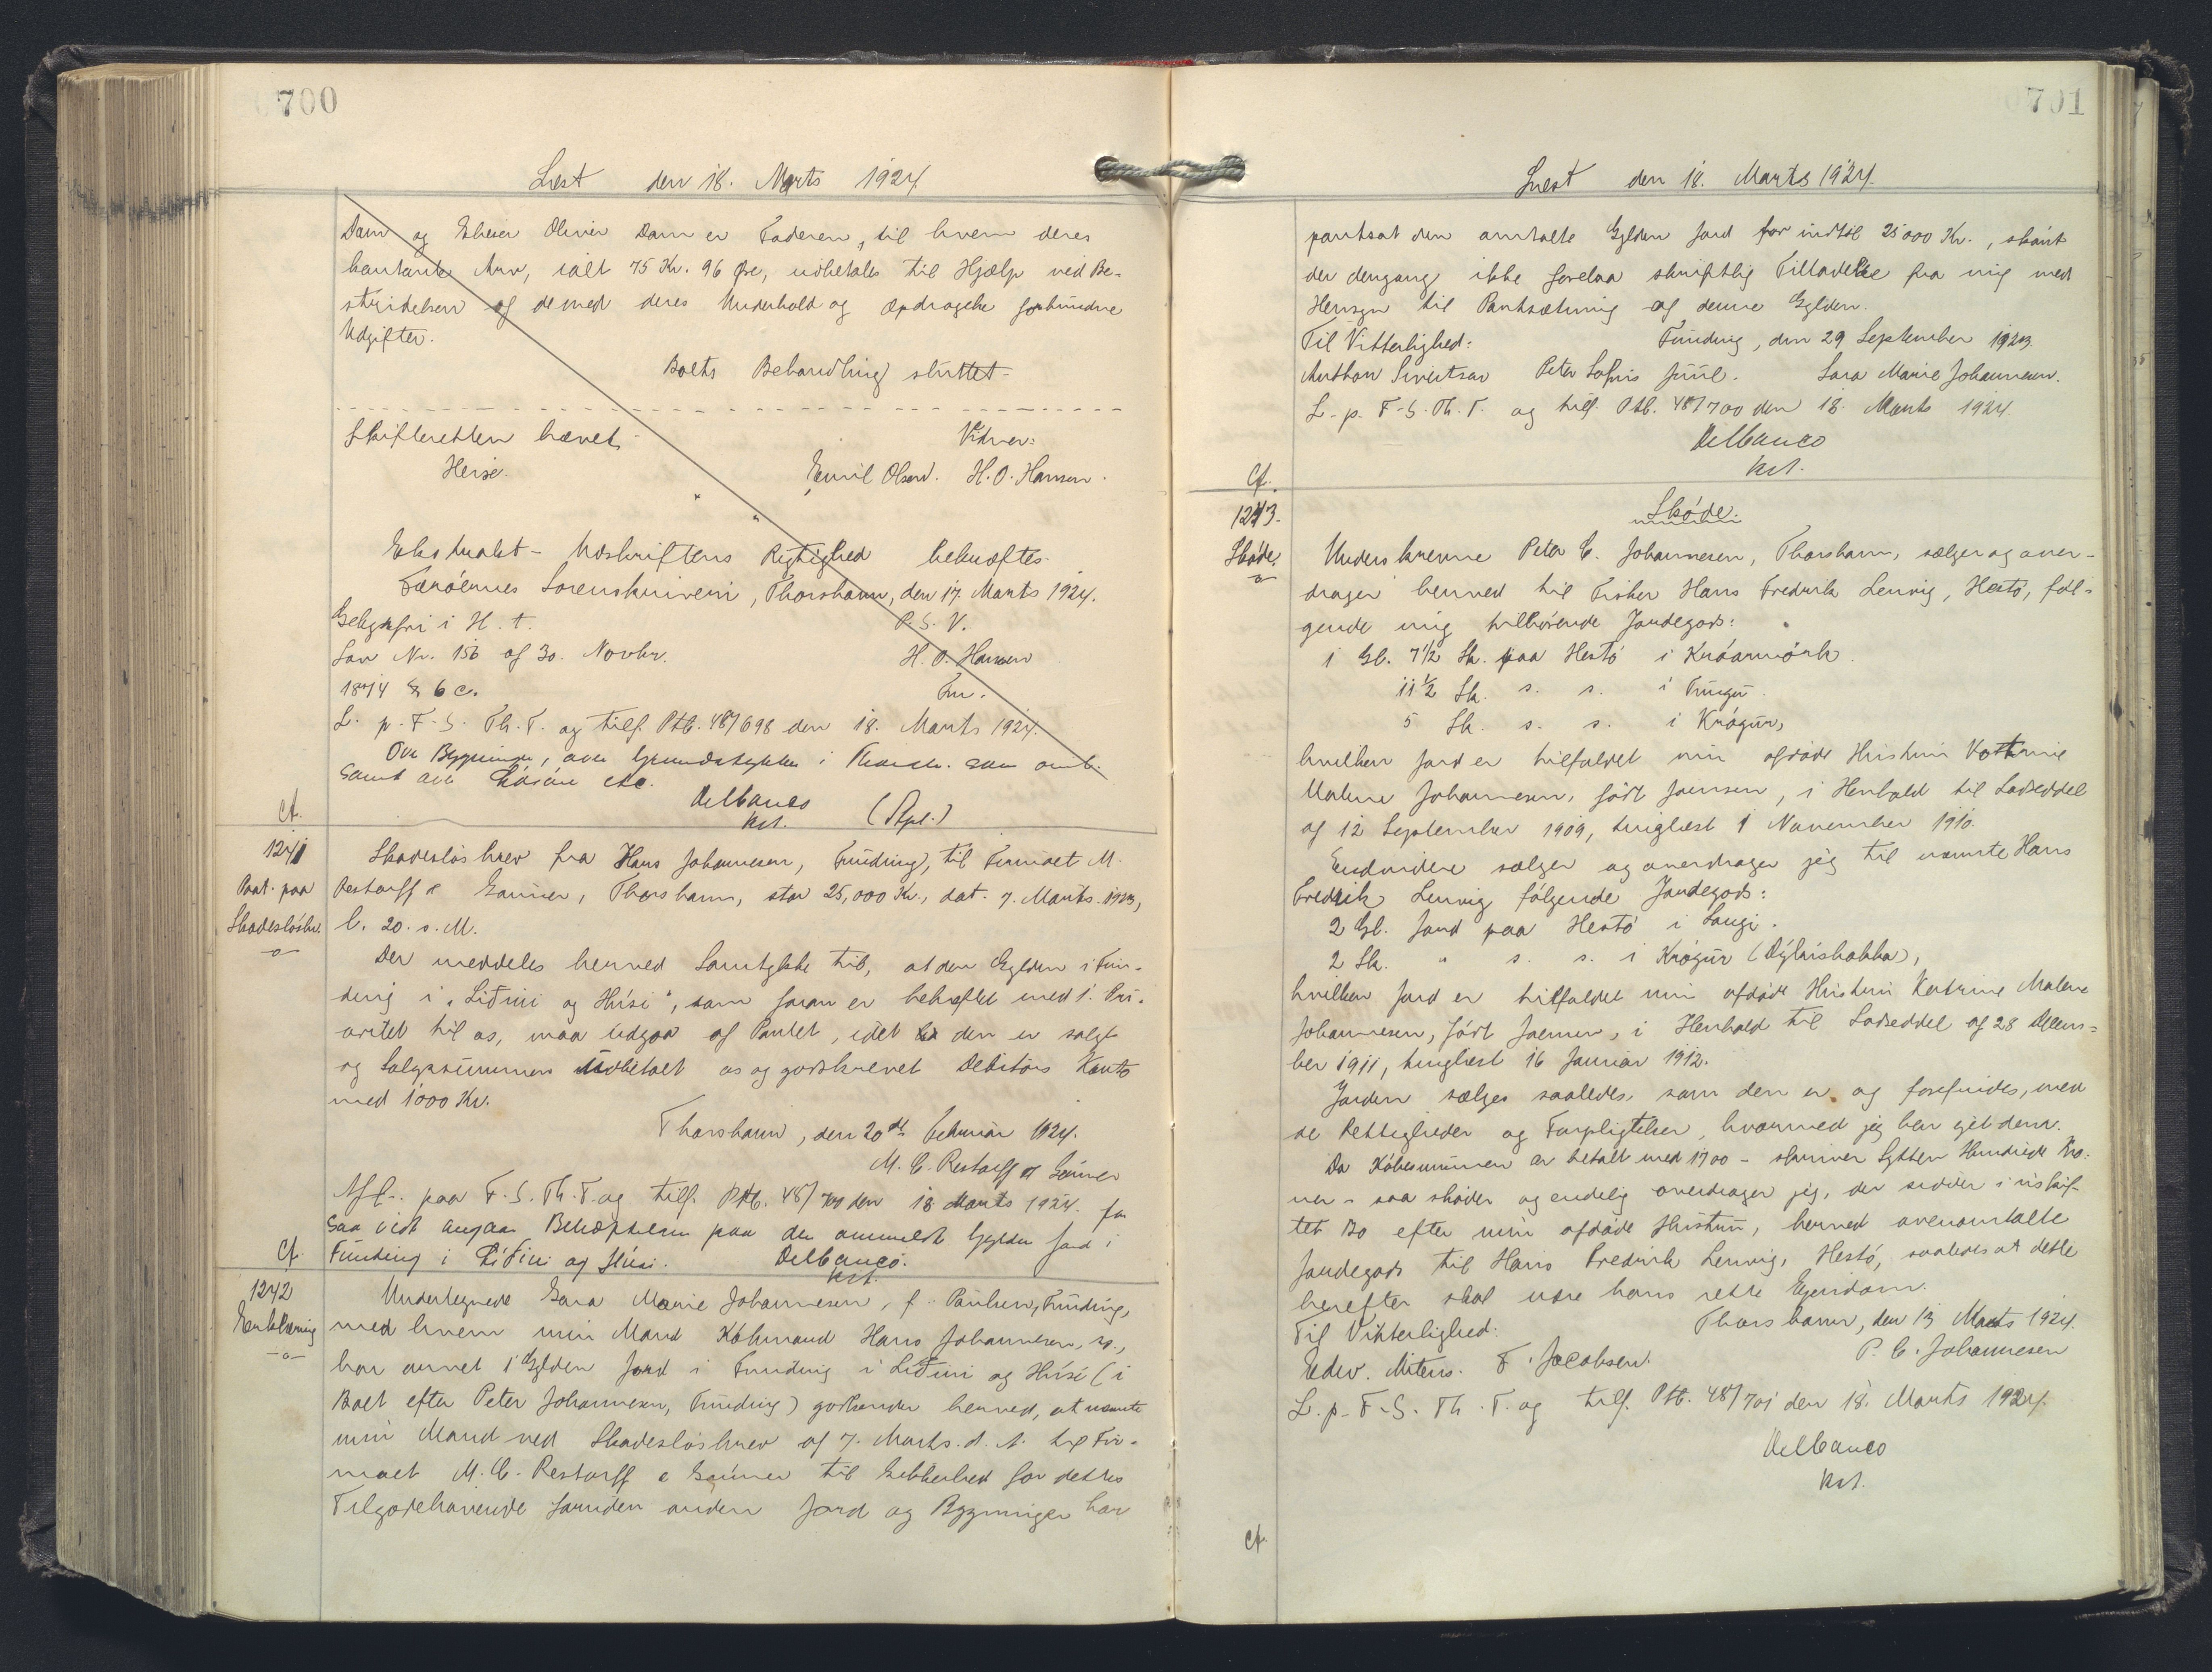 700
Læst den 18. Marts 1924
Dam og Olivir Dam er Faderen, til hvem deres
kontante Arv, ialt 75 Kr. 96 Øre, udbetales til Hjælp ved Be-
stridelsen af de med deres Underhold og Opdragelse forbundne
Udgifter.
Boets Behandling sluttet.
Skifteretten hævet. Vidner:
Heise. Emil Olsen. H. O. Hansen.
Ekstrakt-Udskriftens Rigtighed bekræftes.
Færøernes Sorenskriveri, Thorshavn, den 17. Marts 1924.
Gebyrfri i H. t. P. S. V.
Lov Nr. 156 af 30. Novbr. H. O. Hansen
1874 § 6 c. Fm.
L. p. F. S. Th. T. og tilf. Ptb. 48/698 den 18. Marts 1924.
Ove Bygninger, over Grundstykke i Thorsh. som omt.
samt
Delbanco (Stpl.)
kst.
Cf.
1241 Skadesløsbrev fra Hans Johannesen, Funding, til Firmaet M.
Paat. paa Restorff & Sønner, Thorshavn, stor 25,000 Kr., dat. 7. Marts 1923,
Skadesløsbr. l. 20. s. M.
Der meddeles herved Samtykke til, at den Gylden i Fun-
ding i "Liðini og Húsi", som foran er behæftet med 1. Pri-
oritet til os, maa udgaa af Pantet, idet den er solgt
og Salgssummen udbetalt os og godskrevet Debitors Konto
med 1000 Kr.
Thorshavn, den 20de Februar 1924.
M. C. Restorff & Sønner
Afl. paa F. S. Th. T. og tilf. Ptb. 48/700 den 18 Marts 1924. for
saa vidt angaar Behæftelsen paa den ommeldte Gylden Jord i
Cf. Funding i Liðini og Húsi. Delbanco.
kst.
1242 Undertegnede Sara Marie Johannesen, f. Poulsen, Funding,
Erklæring med hvem min Mand Købmand Hans Johannesen, sg.,
har arvet 1 Gylden Jord i Funding i Liðini og Húsi (i
Boet efter Peter Johannesen, Funding) godkender herved, at nævnte
min Mand ved Skadesløsbrev af 7. Marts d. A. til Fir-
maet M. C. Restorff & Sønner til Sikkerhed for dettes
Tilgodehavende foruden anden Jord og Bygninger har
701
Læst den 18. Marts 1924.
pantsat den omtalte Gylden Jord for indtil 25000 Kr., skønt
der dengang ikke forelaa skriftlig Tilladelse fra mig med
Hensyn til Pantsætning af denne Gylden.
Til Vitterlighed: Funding, den 29 September 1923.
Anthon Sivertsen Peter Sofus Juul. Sara Marie Johannesen.
L. p. F. S. Th. T. og tilf. Ptb. 48/700 den 18. Marts 1924.
Delbanco
kst.
Cf.
1243. Skøde.
Skøde. Underskrevne Peter C. Johannesen, Thorshavn, sælger og over-
drager herved til Fisker Hans Fredrik Lervig, Hestø, føl-
gende mig tilhørende Jordegods:
1 Gl. 7 1/2 Sk. paa Hestø i Króarmörk.
11 1/2 Sk. s. s. i Tungu.
5 Sk. s. s. i Krógur,
hvilken Jord er tilfaldet min afdøde Hustru Katrine
Malene Johannesen, født Joensen, i Henhold til Lodseddel
af 12 September 1909, tinglæst 1 November 1910.
Endvidere sælger og overdrager jeg til nævnte Hans
Fredrik Lervig følgende Jordegods:
2 Gl. Jord paa Hestø i Laugi.
2 Sk. " s. s. i Krógur (Dýknishakka),
hvilken Jord er tilfaldet min afdøde Hustru Katrine Malene
Johannesen, født Joensen, i Henhold til Lodseddel af 28 Decem-
ber 1911, tinglæst 16 Januar 1912.
Jorden sælges saaledes, som den er og forefindes, med
de Rettigheder og Forpligtelser, hvormed jeg har ejet dem.
Da Købesummen er betalt med 1700 - skriver Sytten Hundrede Kro-
ner - saa skøder og endelig overdrager jeg, der sidder i uskif-
tet Bo efter min afdøde Hustru, herved ovenomtalte
Jordegods til Hans Fredrik Lervig, Hestø, saaledes at dette
herefter skal være hans rette Ejendom.
Til Vitterlighed: Thorshavn, den 13 Marts 1924.
Edw. Mitens. F. Jacobsen. P. C. Johannesen
L. p. F. S. Th. T. og tilf. Ptb. 48/701 den 18. Marts 1924.
Delbanco
kst.
Cf.